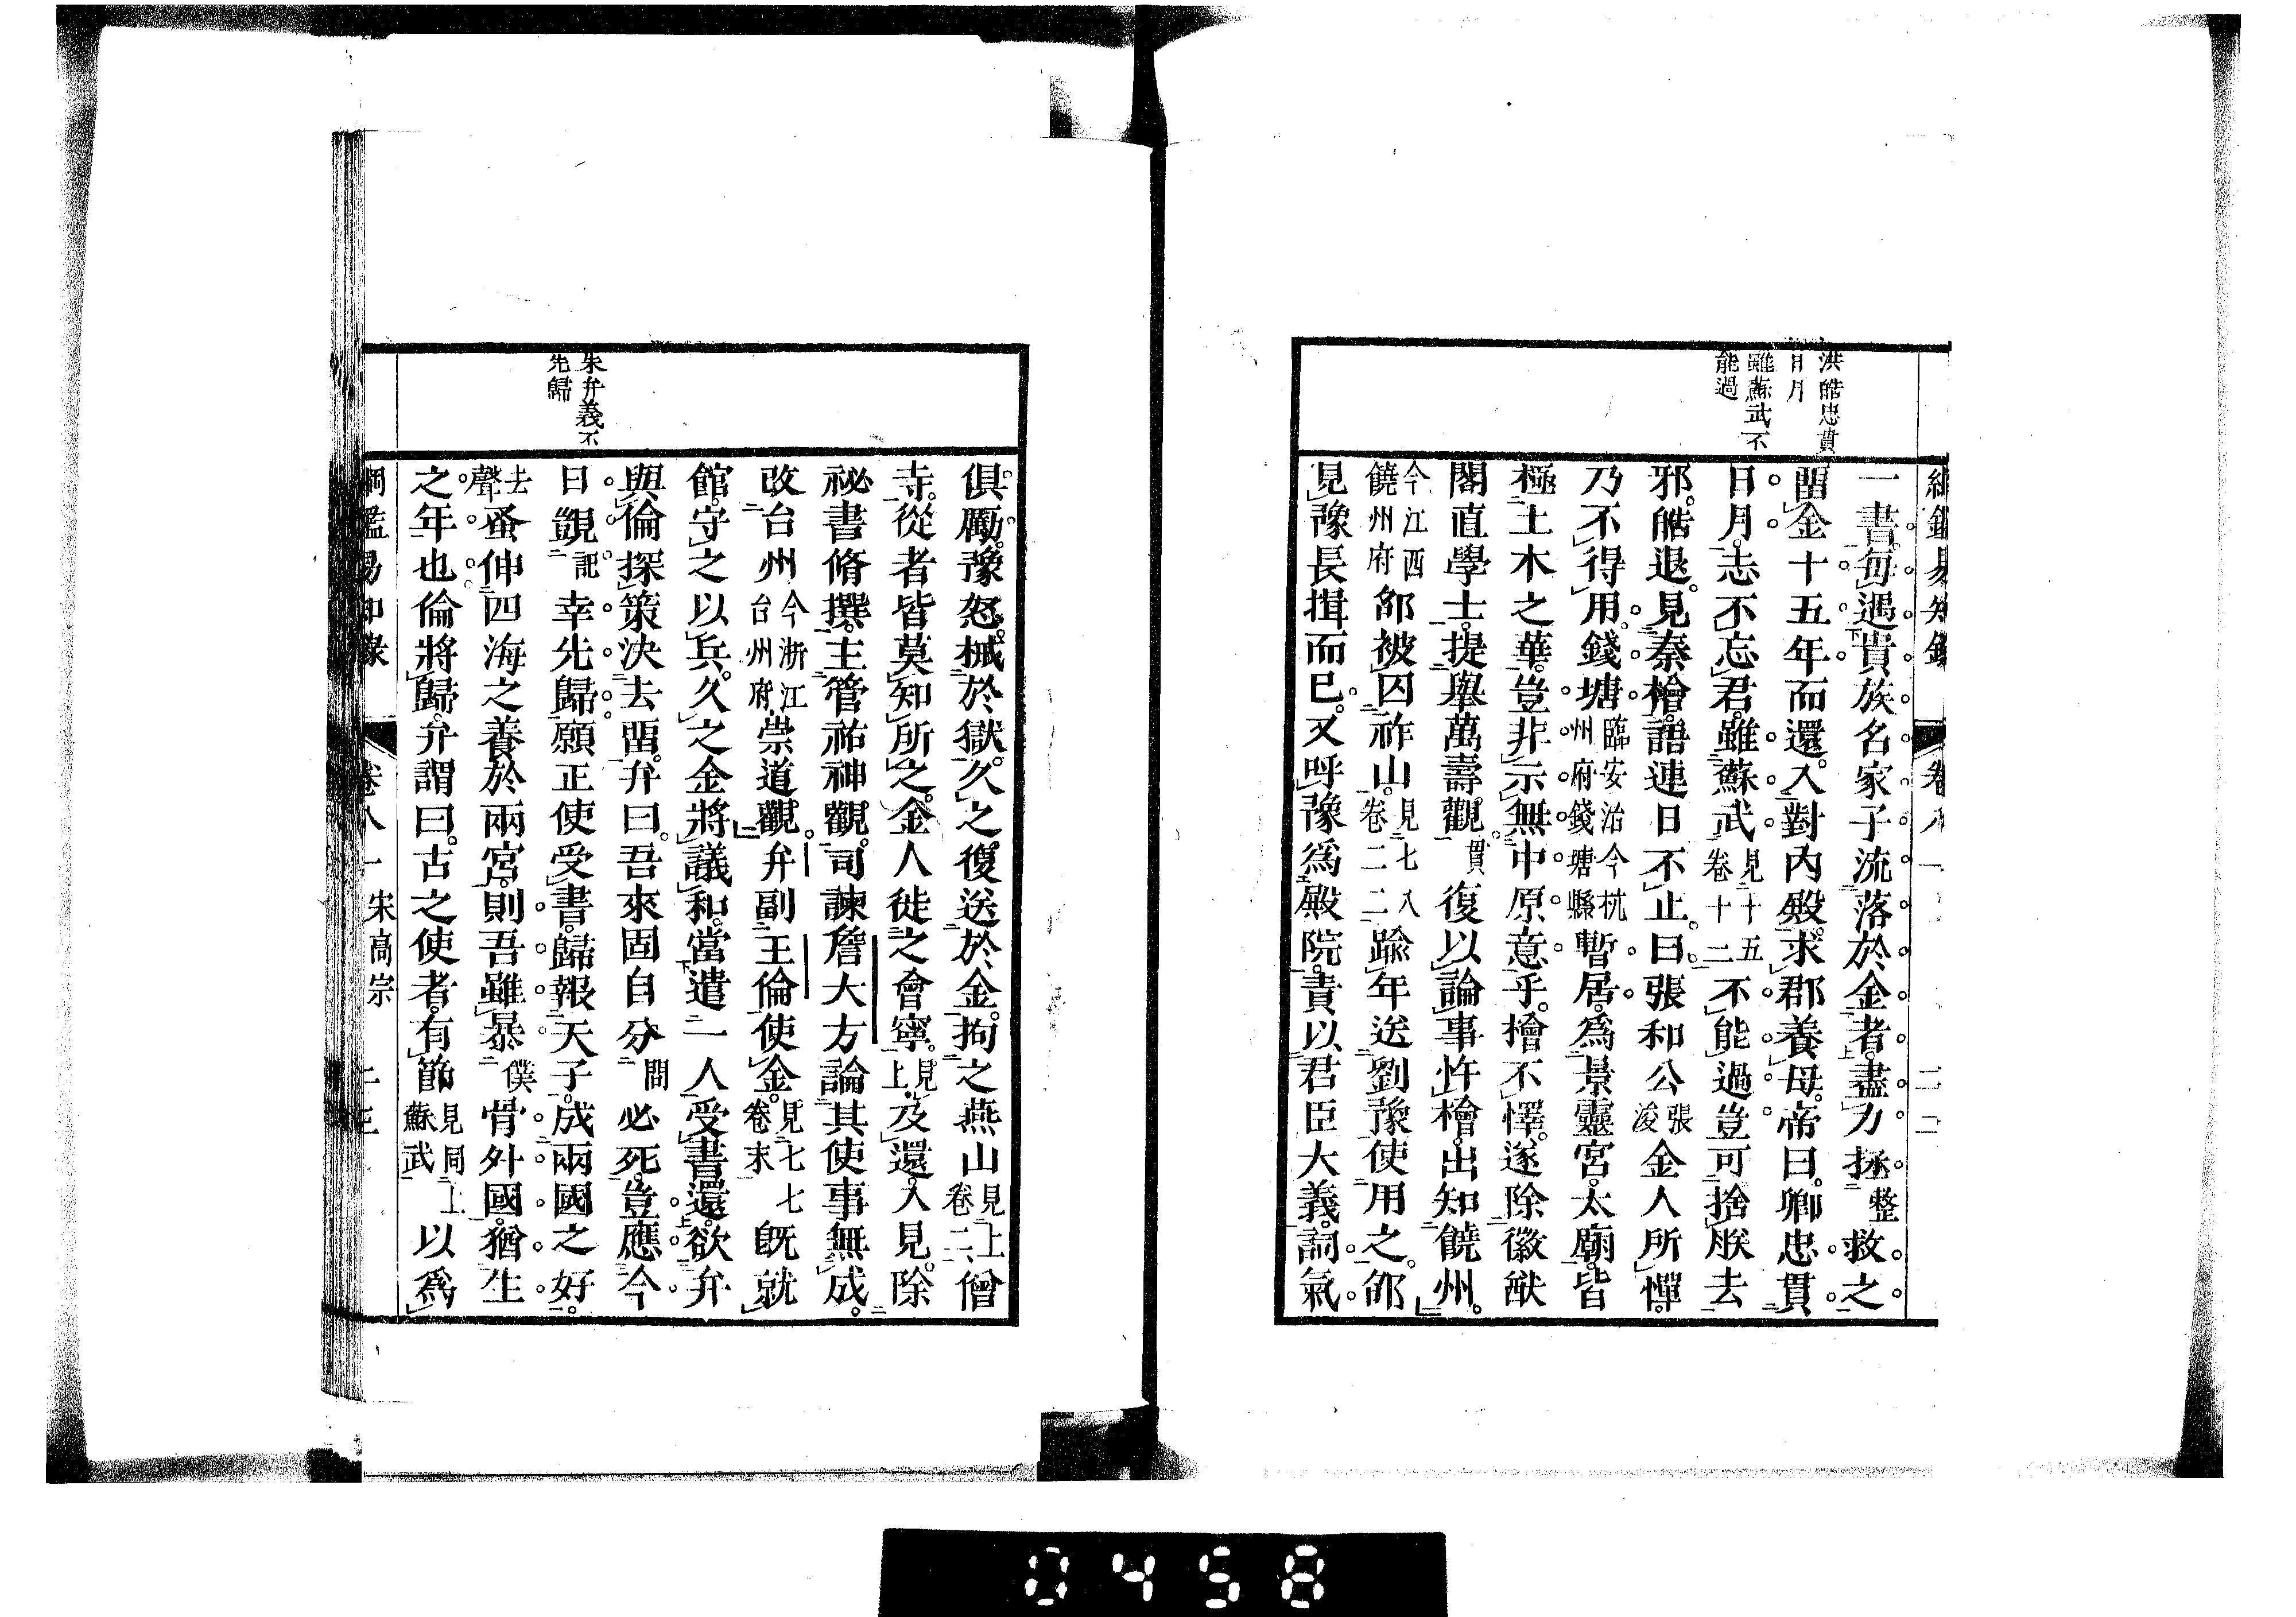 綱鑑易知錄 卷八一 二二
洪皓忠貫
日月
雖蘇武不
能過
一書每遇貴族名家子流落於金者盡力拯整救之
留金十五年而還入對內殿求郡養母帝曰卿忠貫
日月志不忘君雖蘇武見二十五卷十二不能過豈可捨朕去
邪皓退見秦檜語連日不止曰張和公張浚金人所憚
乃不得用錢塘臨安治今杭州府錢塘縣暫居爲景靈宮太廟皆
極土木之華豈非示無中原意乎檜不懌遂除徽猷
閣直學士提舉萬壽觀貫復以論事忤檜出知饒州
今江西饒州府郤被囚祚山見七八卷二二踰年送劉豫使用之郤
見豫長揖而已又呼豫爲殿院責以君臣大義詞氣
俱厲豫怒械於獄久之復送於金拘之燕山見上卷二僧
寺從者皆莫知所之金人徙之會寧見上及還入見除
祕書脩撰主管祐神觀司諫詹大方論其使事無成
改台州今浙江台州府崇道觀弁副王倫使金見七七卷末既就
館守之以兵久之金將議和當遣一人受書還欲弁
與倫探策決去留弁曰吾來固自分問必死豈應今
日覬記幸先歸願正使受書歸報天子成兩國之好
去聲蚤伸四海之養於兩宮則吾雖暴僕骨外國猶生
之年也倫將歸弁謂曰古之使者有節見同上蘇武以爲
朱弁義不
先歸
綱鑑易知錄 卷八一 宋高宗 二三
0458